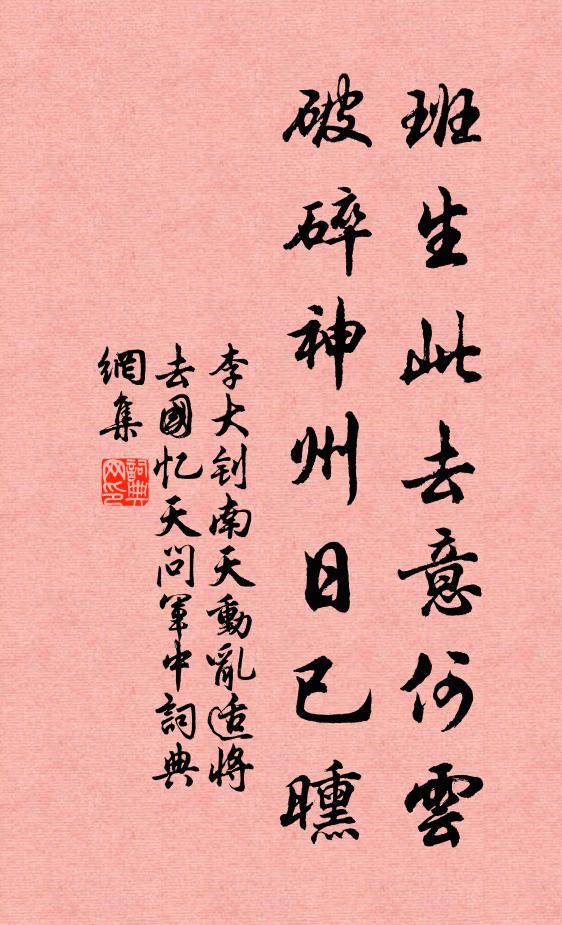 班生此去意何雲
破碎神州日已曛
李大釗南天動亂適將
去國忆天問軍中詞典
網集
詞典网印